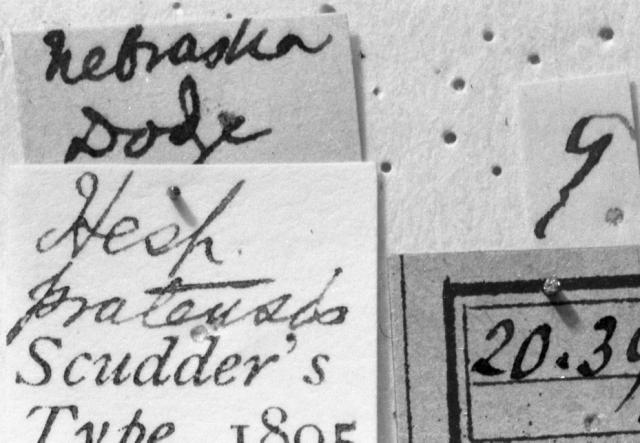 Nebraska
Dodge
Hesp.
pratensis
Scudder's
Type 1895
9
20.39